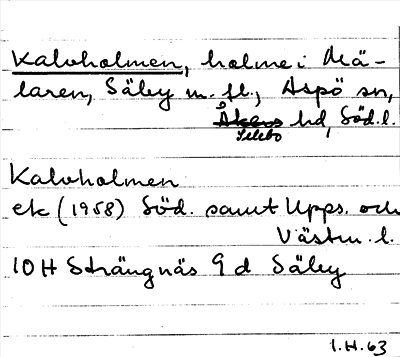 Kalvholmen, holme i Mä-
laren, Säby m. fl., Aspö sn,
Åkers hd, Söd. l.
Selebo
Kalvholmen
ek (1958) Söd. samt Upps. och
Västm. l.
10H Strängnäs 9d Säby
1.H.63